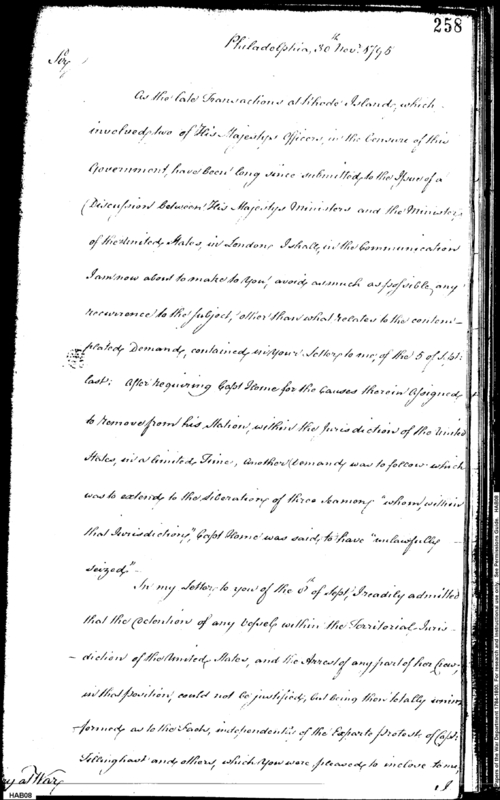 258
Philadelphia, 30th Nov.r 1795
Sir,
As the late Transactions at Rhode Island, which
involved two of His Majestys Officers, in the Censure of this
Government, have been long since submitted to the Issue of a
Discussion between His Majestys Ministers and the Minister
of the United States, in London; I shall, in the Communication
I am now about to make to You, avoid as much as possible, any
recurrence to the subject, other than what relates to the contem-
plated Demand, contained in your Letter to me, of the 5 of Sept:
last: After requiring Capt Home for the Causes therein assigned,
to remove from his Station, within the Jurisdiction of the United
States, in a limited Time, another Demand was to follow which
was to extend to the liberation of three Seamen, "whom, within
that Jurisdiction", Capt Home was said, to have "unlawfully
seized,"
In my Letter, to you of the 8th of Sept, I readily admitted
that the Detention of any Vessel, within the Territorial Juris-
-diction of the United States, and the Arrest of any part of her Crew,
in that position, could not be justified, but being then totally unin-
-formed, as to the Facts, independently of the Exparte Protests of Capt:
Tillinghast and others, which You were pleased, to inclose to me,
I
ry at War
HAB08